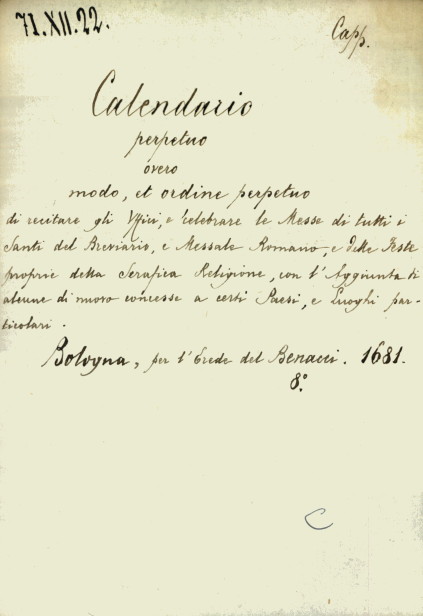 71.XII.22.
Capp.
Calendario
perpetuo
overo
modo, et ordine perpetuo
di recitare gli Uffici, e celebrare le Messe di tutti i
Santi del Breviario, e Messale Romano, e delle Feste
proprie della Serafica Religione, con l'Aggiunta di
alcune di nuovo concesse a certi Paesi, e Luoghi par-
ticolari.
Bologna, per l'Erede del Benacci. 1681.
8.º
C